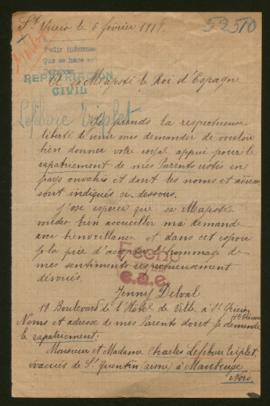 52510
février 1918
Pedir informes
que se hace en
REPATRIACION
CIVIL
Lefebvre Triplet
A sa Majesté le Roi d'Espagne
Je prends la respectueuse
liberté de vous demander de vouloir
bien donner votre appui pour le
rapatriement de mes Parents restés en
pays envahis et dont les noms et
sont indiqués ci dessous.
J'ose espérer que sa Majesté
bien accueillir ma demande
avec bienveillance, et dans cet espoir
je la prie d'agréer l'hommage de
mes sentiments respectueusement
dévoués.
Fecho
Jenny Delval
19 Boulevard de l'Hôtel de Ville, à St
Noms et adresse de mes Parents dont je demande
le rapatriement.
Monsieur et Madame Charles Lefebvre Triplet
évacués de St Quentin Aisne à Maubeuge
Nord